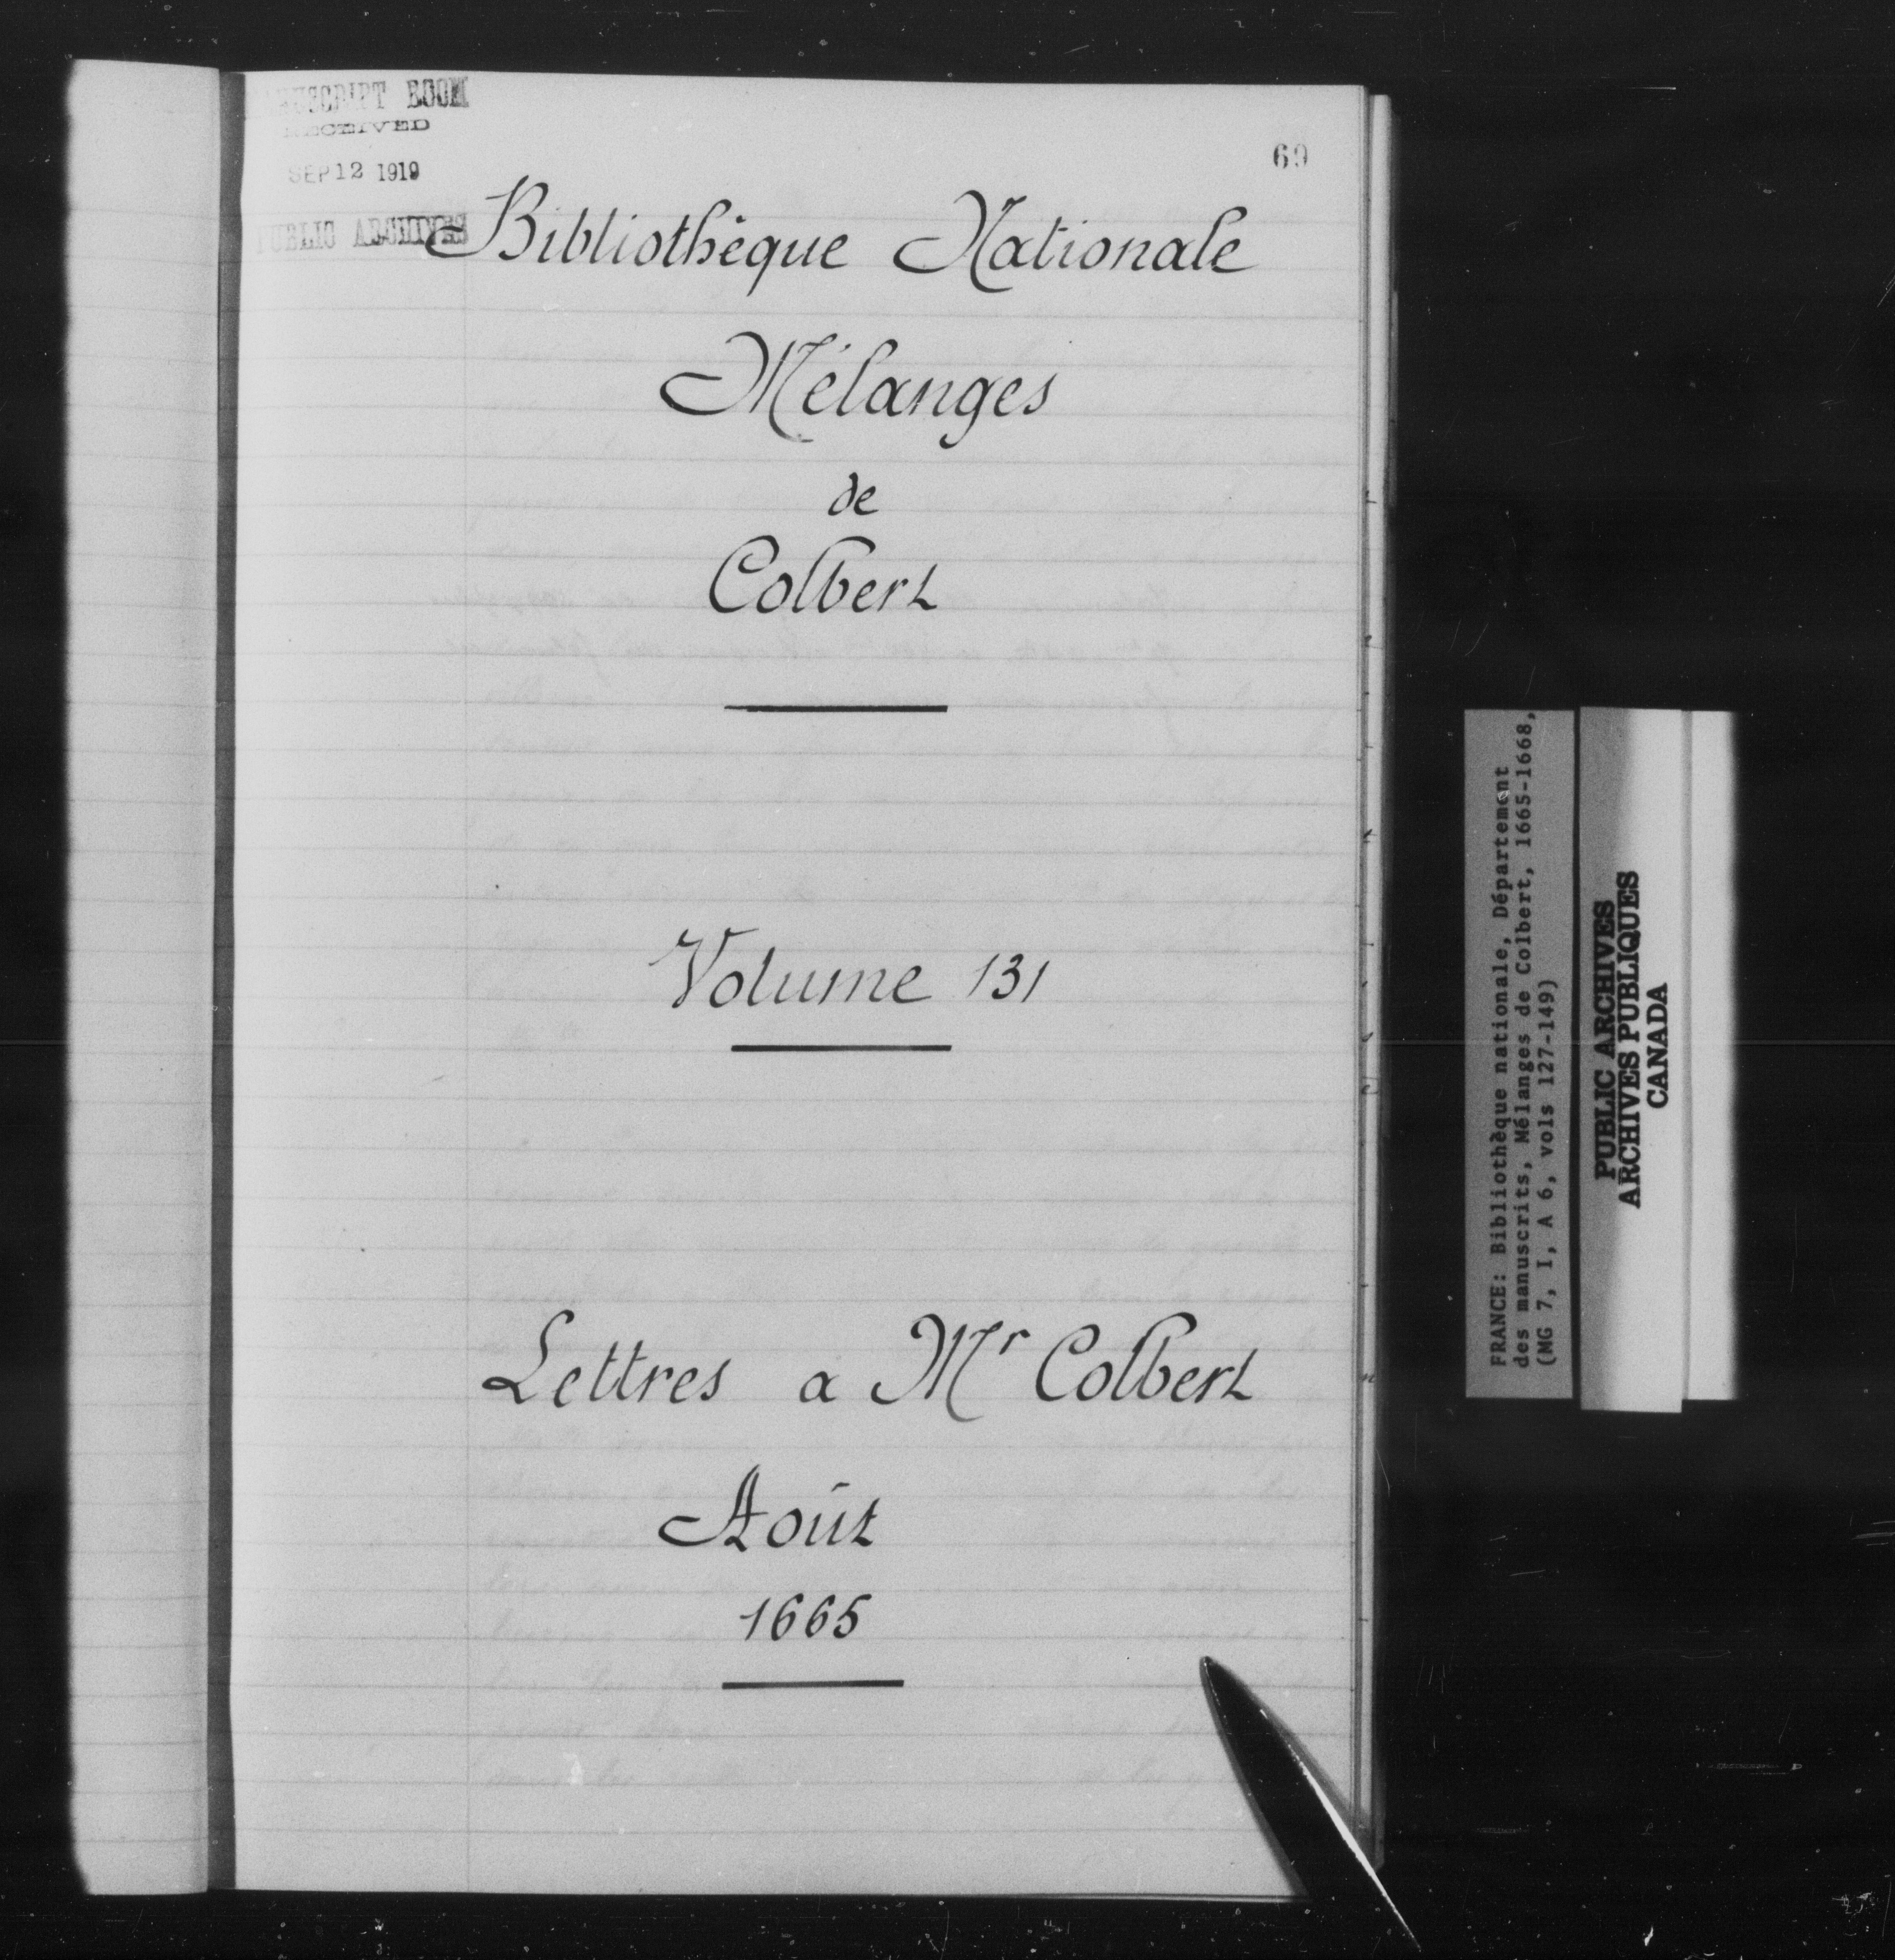 MANUSCRIPT ROOM
RECEIVED
SEP 12 1919
PUBLIC ARCHIVES
69
Bibliothèque Nationale
Mélanges
de
Colbert
Volume 131
Lettres a Mr Colbert
Août
1665
FRANCE: Bibliothèque nationale, Département
des manuscrits, Mélanges de Colbert, 1665-1668,
(MG 7, I, A 6, vols 127-149)
PUBLIC ARCHIVES
ARCHIVES PUBLIQUES
CANADA